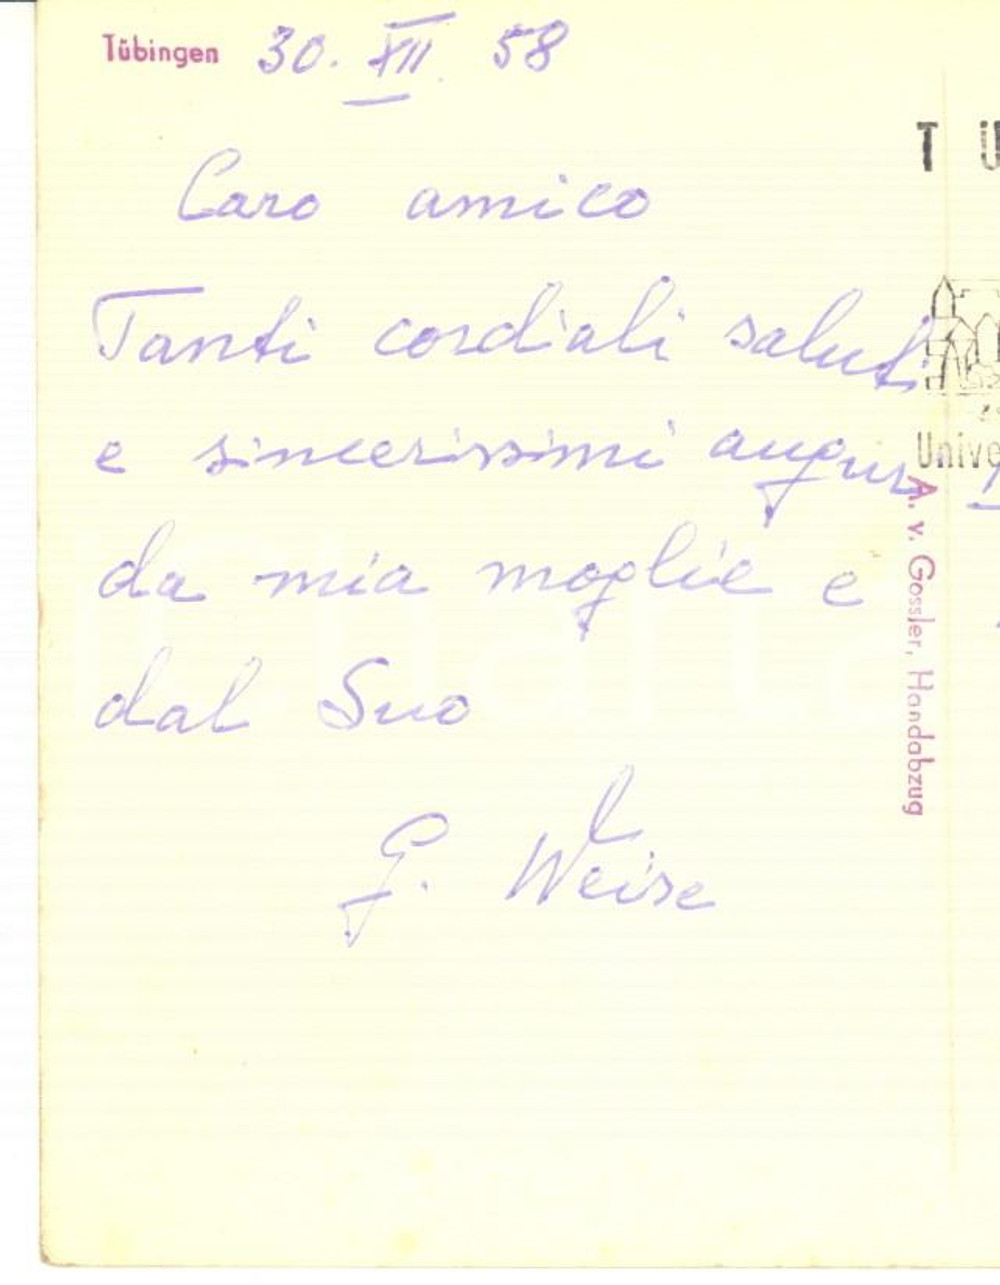 Tübingen 30. XII 58
Caro amico
Tanti cordiali saluti
e sincerissimi auguri
da mia moglie e
dal Suo
G. Weise
T Ü
Unive
A. v. Gossler, Handabzug